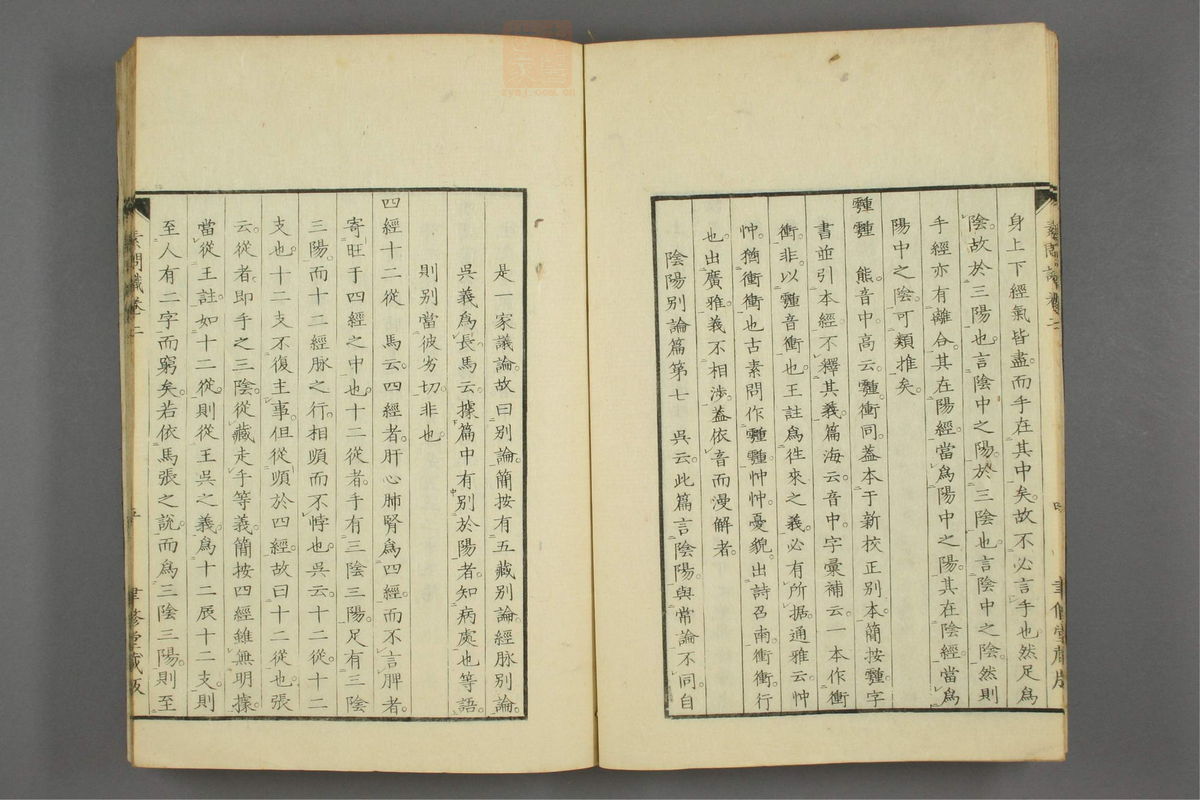 身上下經氣皆盡而手在其中矣故不必言手也然足爲
陰故於三陽也言陰中之陽於三陰也言陰中之陰然則
手經亦有離合其在陽經當爲陽中之陽其在陰經當爲
陽中之陰可類推矣
𩅞𩅞 熊音中高云𩅞衝同蓋本于新校正別本簡按𩅞字
書並引本經不釋其義篇海云音中字彙補云一本作衝
衝非以𩅞音衝也王註爲徃來之義必有所据通雅云忡
忡猶衝衝也古素問作𩅞𩅞忡忡憂貌出詩召南衝衝行
也出廣雅義不相涉蓋依音而漫解者
陰陽別論篇第七 吳云此篇言陰陽與常論不同自
素問識卷二
聿修堂藏版
是一家議論故曰別論簡按有五藏別論經脉別論
吳義爲長馬云據篇中有別於陽者知病處也等語
則別當彼劣切非也
四經十二從 馬云四經者肝心肺腎爲四經而不言脾者
寄旺于四經之中也十二從者手有三陰三陽足有三陰
三陽而十二經脉之行相順而不悖也吳云十二從十二
支也十二支不復主事但從順於四經故曰十二從也張
云從者即手之三陰從藏走手等義簡按四經雖無明據
當從王註如十二從則從王吳之義爲十二辰十二支則
至人有二字而窮矣若依馬張之說而爲三陰三陽則至
素問識卷二
五
聿修堂藏版